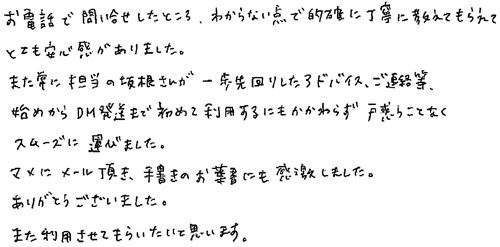 お電話で問い合せしたところ、わからない点で的確に丁寧に教えてもらえて
とても安心感がありました。
また常に担当の坂根さんが一歩先回りしたアドバイス、ご連絡等、
始めからDM発送まで初めて利用するにもかかわらず戸惑うことなく
スムーズに運びました。
マメにメール頂き、手書きのお葉書にも感激しました。
ありがとうございました。
また利用させてもらいたいと思います。